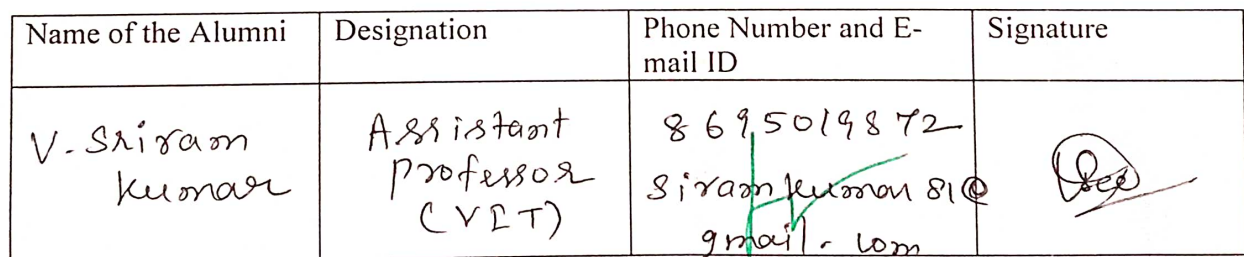 Name of the Alumni Designation Phone Number and E-
mail ID Signature
V. Sriram
Kumar
Assistant
Professor
(VIT)
8695019872
Siramkumar81@
gmail.com